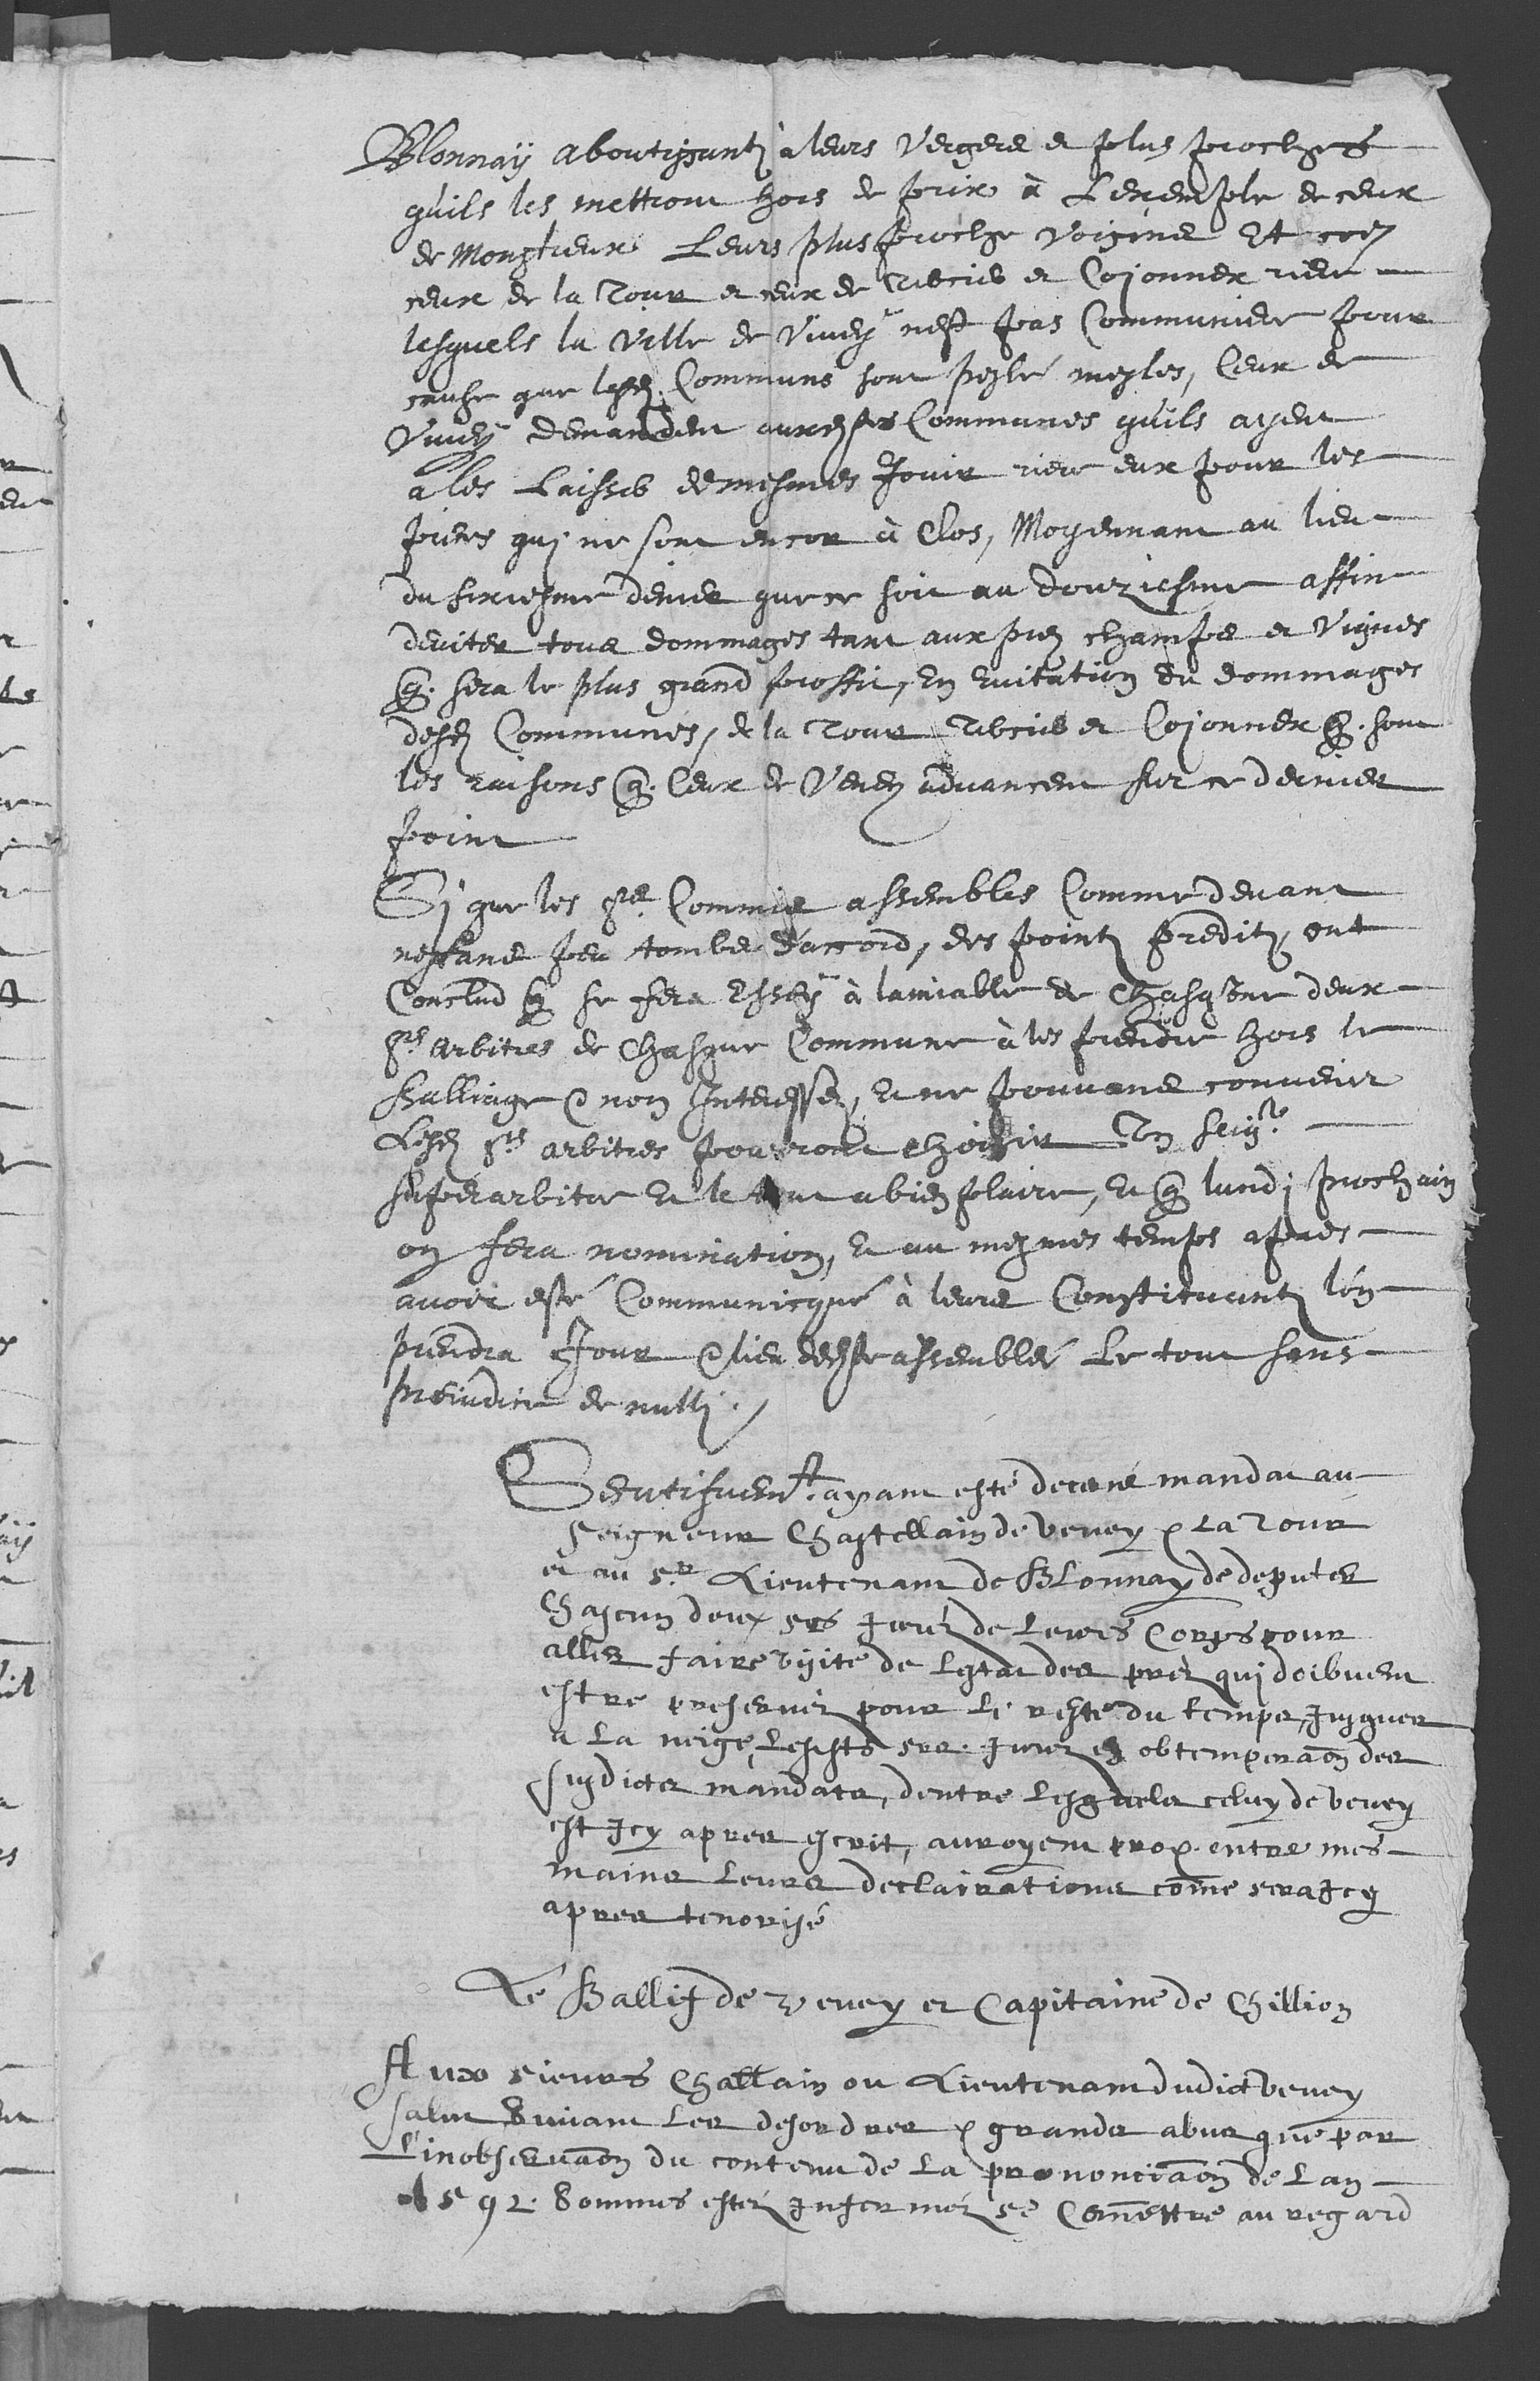 Blonnaÿ aboutissants à leurs vergers et plus prochers
quils les mettront hors de prix à Lexemple de ceux
de Monstreux Leurs plus proche voisins Et
ceux de la Tour et ceux de et Cojonnex riere
lesquels la Ville de Vivey nest pas Communiere pour
cause que lesd. Communs sont pesle mesles, Ceux de
Vivey demandent auxd. Communes quils ayent
a les Laisser de mesmes Jouir riere eux pour les
pieces qui ne sont encor à Clos, Moyennant au lieu
du sixiesme denier que ce soit au douziesme affin
deviter tous dommages tant aux prez champs et vignes
q. sera le plus grand proffit, En evitation du dommages
desd. Communes, de la Tour et Cojonnex q. sont
les raisons q. Ceux de Vevey advancent sur ce dernier
point
Si que les srs. Commis assembles Comme devant
nestans peu tomber d'accord, des points predits, ont
Conclud q. se fera Essay à lamiable de Chasq
srs arbitres de Chasque Commune à les prendre hors le
Balliage & non Interessez, Et ne pouvans convenir
Lesd. srs arbitres pourront choisir Un seigr.
superarbitre Et le tout a bien plaire, Et q. lundi prochain
on fera nomination, Et au mesmes temps apres
avoir esté Communicqué à leurs Constituants lon
prendra Jour & lieu assemblér Le tout sans
preiudice de nulli.
ayant esté decerné mandat au
Seigneur Chastellain de Vevey & La Tour
et au Sr. Lieutenant de Blonnay de deputer
Chascun deux Srs Jurez de Leurs Corps pour
aller faire visite de Lestat des prez qui doibvent
estre preservéz pour le reste du temps, Jusques
a La neige, Lesdits srs. Jurez en obtemperaon des
susdicts mandats, dentre Lesquels celuy de Vevey
est Icy apres escrit, auroyent entre mes
mains Leurs declairations come sera Icy
apres tenorisé
Le Ballif de Vevey et Capitaine de Chillion
Aux Sieurs Challain ou Lieutenant dudict Vevey
salut Suivant Les desordres & grands abus que par
L'inobservaon du contenu de La prononciaon de Lan
1592. Sommes estéz Informéz se Comettre au regard